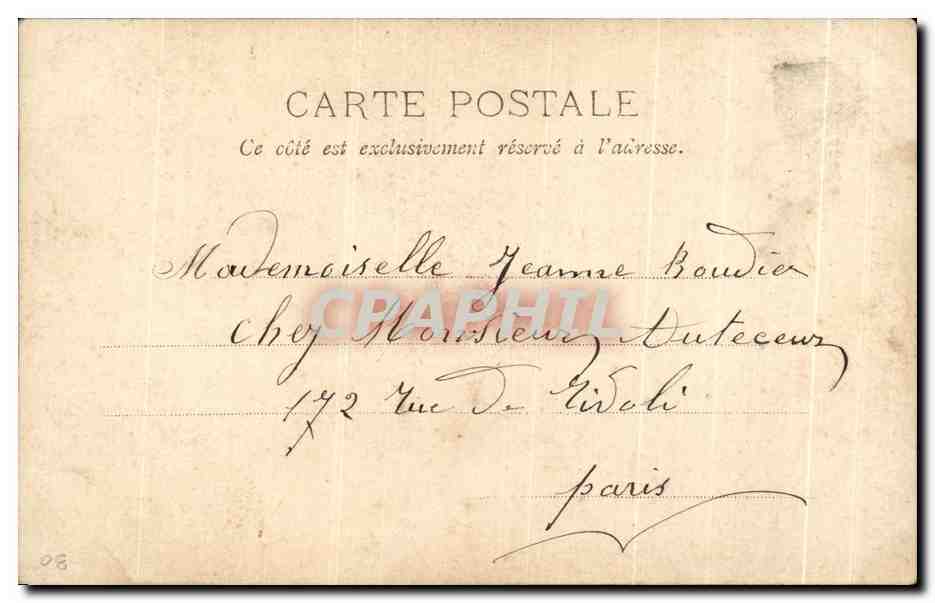 CARTE POSTALE
Ce côté est exclusivement réservé à l'adresse.
Mademoiselle Jeanne Boudier
CPAPHIL
chez Monsieur Auteceur
172 Rue de Rivoli
paris
08